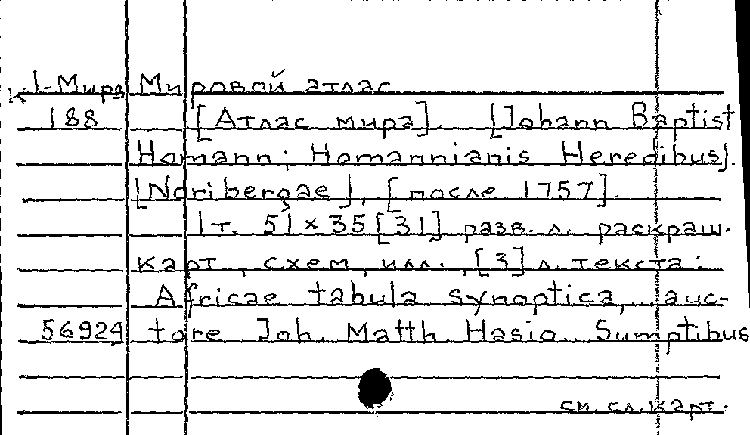 К1-Мира Мировой атлас
188 [Атлас мира]. [Johann Baptist
Homann; Homannianis Heredibus].
[Noribergae], [после 1757].
1 т. 51 x 35 [31] разв. л. раскраш.
карт, схем, илл., [3] л. текста:
Africae tabula synoptica, auc-
56924 tore Joh. Matth Hasio. Sumptibus
см. сл. карт.